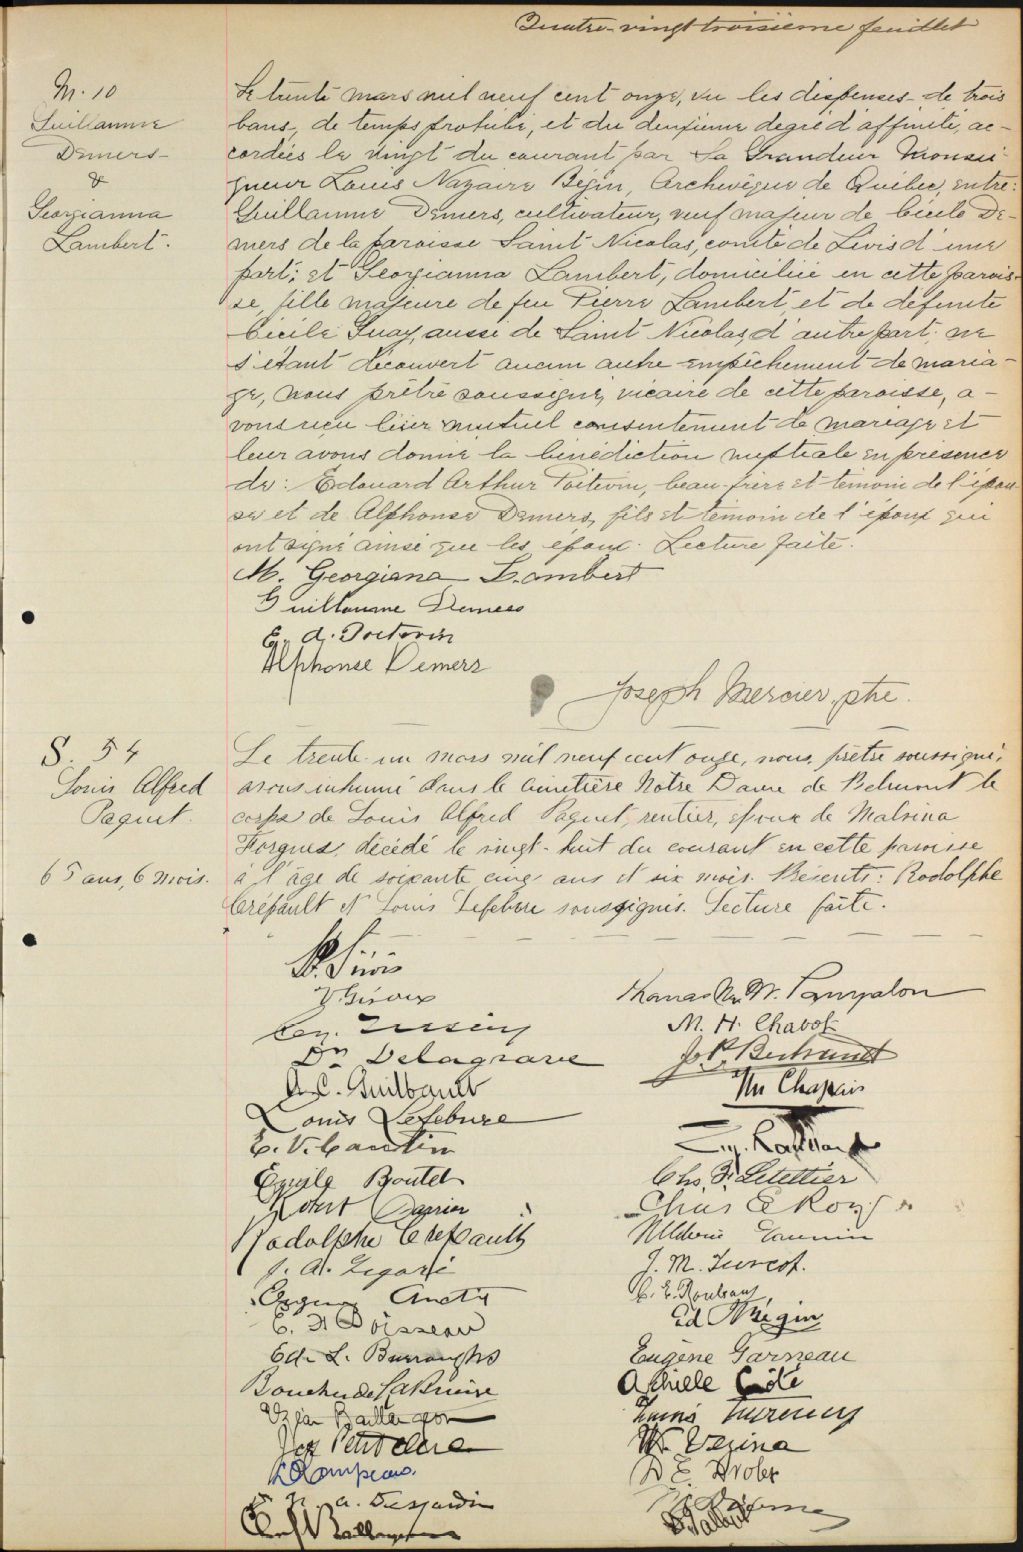 Quatre-vingt troisième feuillet
M. 10
Guillaume
Demers
&
Georgianna
Lambert.
Le trente mars mil neuf cent onze, vu les dispenses de trois
bans, de temps prohibé, et du deuxième degré d'affinité, ac-
cordées le vingt du courant par Sa Grandeur Monsei-
gneur Louis Nazaire Bégin, Archevêque de Québec, entre:
Guillaume Demers, cultivateur, veuf majeur de Cécile De-
mers de la paroisse Saint Nicolas, comté de Lévis d'une
part; et Georgianna Lambert, domiciliée en cette parois-
se, fille majeure de feu Pierre Lambert et de défunte
Cécile Guay, aussi de Saint Nicolas, d'autre part; ne
s'étant découvert aucun autre empêchement de maria-
ge, nous prêtre soussigné, vicaire de cette paroisse, a-
vons reçu leur mutuel consentement de mariage et
leur avons donné la bénédiction nuptiale en présence
de: Edouard Arthur Poitevin, beau-frère et témoin de l'épou-
se et de Alphonse Demers, fils et témoin de l'époux qui
ont signé ainsi que les époux. Lecture faite.
M. Georgiana Lambert
Guillaume Demers
E. A. Poitevin
Alphonse Demers
Joseph Mercier, ptre.
S. 54
Louis Alfred
Paquet.
65 ans, 6 mois.
Le trente-un mars mil neuf cent onze, nous, prêtre soussigné,
avons inhumé dans le cimetière Notre Dame de Belmont le
corps de Louis Alfred Paquet, rentier, époux de Malvina
Forgues, décédé le vingt-huit du courant en cette paroisse
à l'âge de soixante cinq ans et six mois. Présents: Rodolphe
Crépault et Louis Lefebvre soussignés. Lecture faite.
Sirois
V. Giroux
Dr Delagrave
A. C. Guilbault
Louis Lefebvre
E. V. Cantin
Emile Boutet
Robert Darrier
Rodolphe Crépault
J. A. Légaré
E. H. Boisseau
Ed. L. Burroughs
Boucher de LaBruère
Baillargeon
Jos Petitclerc
A. Desjardins
Thomas W. Pampalon
M. H. Chabot
Jos P. Bertrand
Wm Chapais
Chs. F. Letellier
Chas E Roy
J. M. Turcot.
Ed Bégin
Eugène Garneau
Achille Côté
W. Vezina
D. E. Drolet